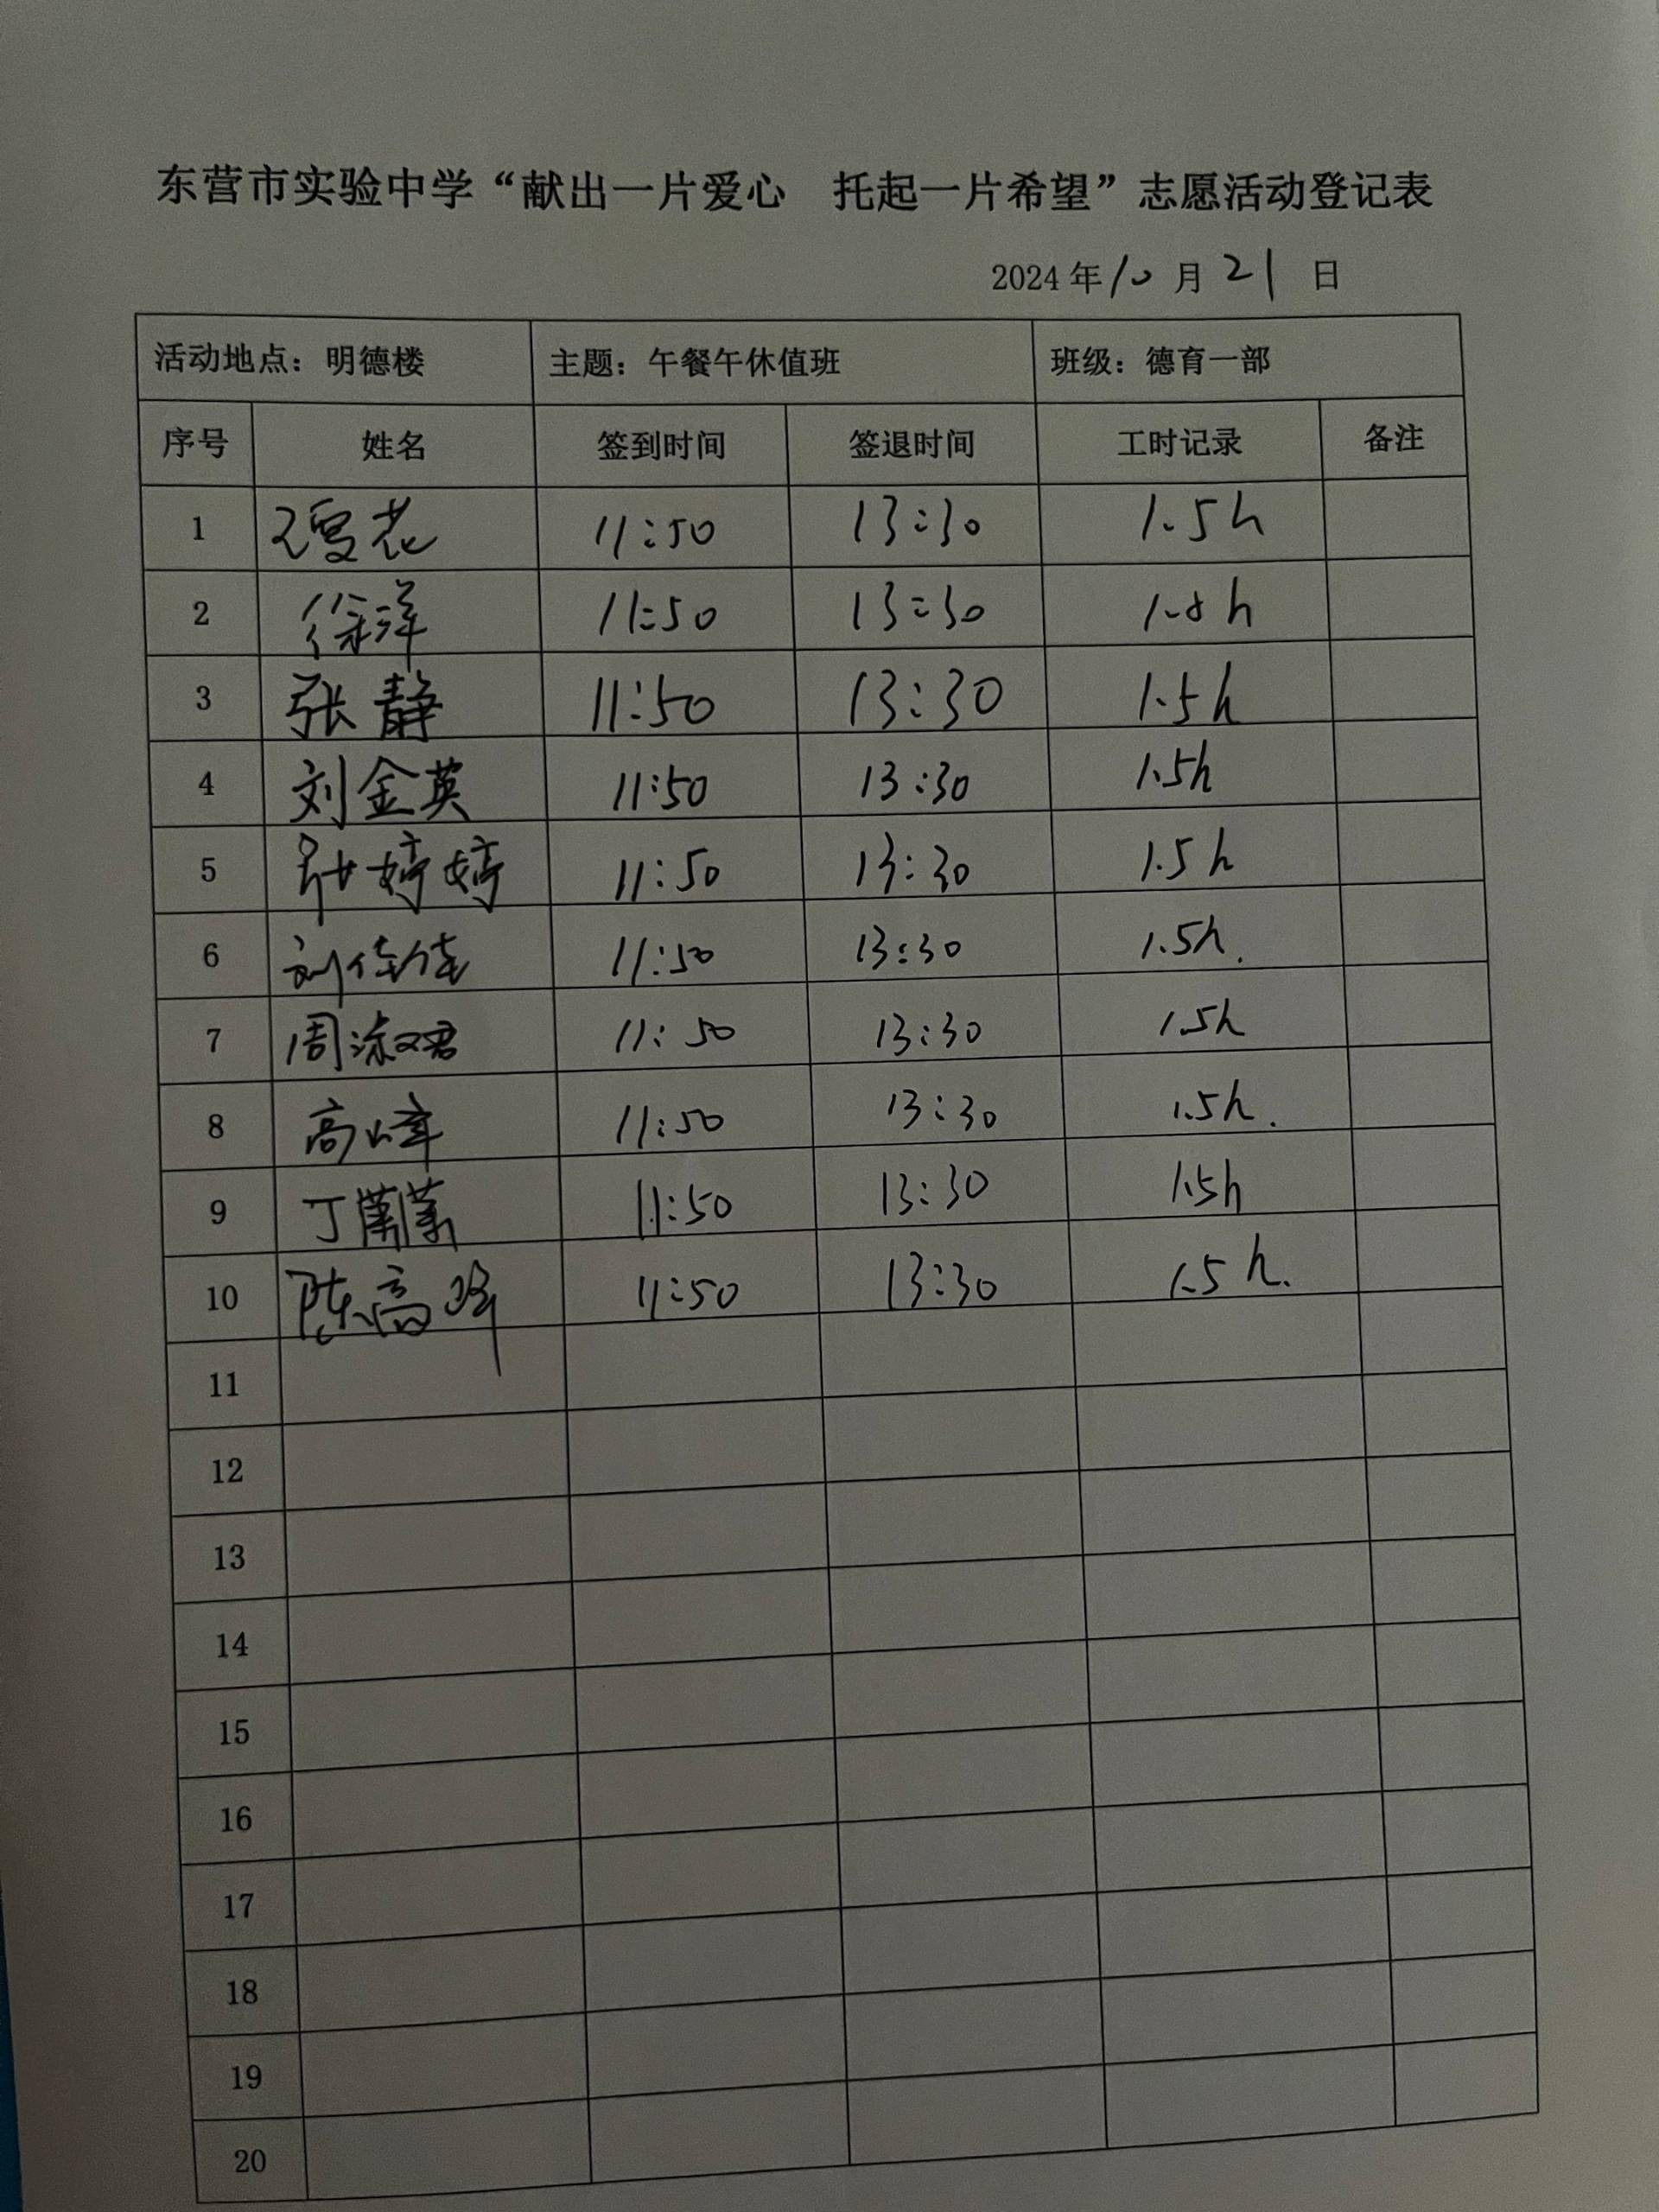 东营市实验中学“献出一片爱心 托起一片希望”志愿活动登记表
2024年10月21日
活动地点：明德楼 主题：午餐午休值班 班级：德育一部
序号 姓名 签到时间 签退时间 工时记录 备注
1 11:50 13:30 1.5h
2 徐洋 11:50 13:30 1.5h
3 张静 11:50 13:30 1.5h
4 刘金英 11:50 13:30 1.5h
5 婷婷 11:50 13:30 1.5h
6 刘佳佳 11:50 13:30 1.5h.
7 周淑君 11:50 13:30 1.5h
8 高峰 11:50 13:30 1.5h.
9 丁潇潇 11:50 13:30 1.5h
10 陈高峰 11:50 13:30 1.5h.
11
12
13
14
15
16
17
18
19
20